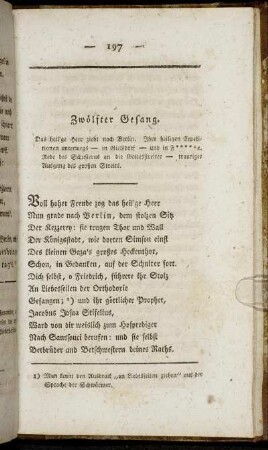 — 197 —
Zwölfter Gesang.
Das heil'ge Heer zieht nach Berlin. Ihre heiligen Expedi-
tionen unterwegs — in Gielsdorf — und in F*****e.
Rede des Schusters an die Gottesstreiter — trauriger
Ausgang des großen Streits.
Voll hoher Freude zog das heil'ge Heer
Nun grade nach Berlin, dem stolzen Sitz
Der Ketzerey: sie trugen Thor und Wall
Der Königsstadt, wie dorten Simson einst
Des kleinen Gaza's großes Heckenthor,
Schon, in Gedanken, auf der Schulter fort.
Dich selbst, o Friedrich, führte ihr Stolz
An Liebesseilen der Orthodoxie
Gefangen; 1) und ihr göttlicher Prophet,
Jacobus Josua Stifelius,
Ward von dir weislich zum Hofprediger
Nach Sanssouci berufen: und sie selbst
Verbrüder und Verschwestern deines Raths.
1) Man kennt den Ausdruck „an Liebesseilen ziehen“ aus der
Sprache der Schwärmer.